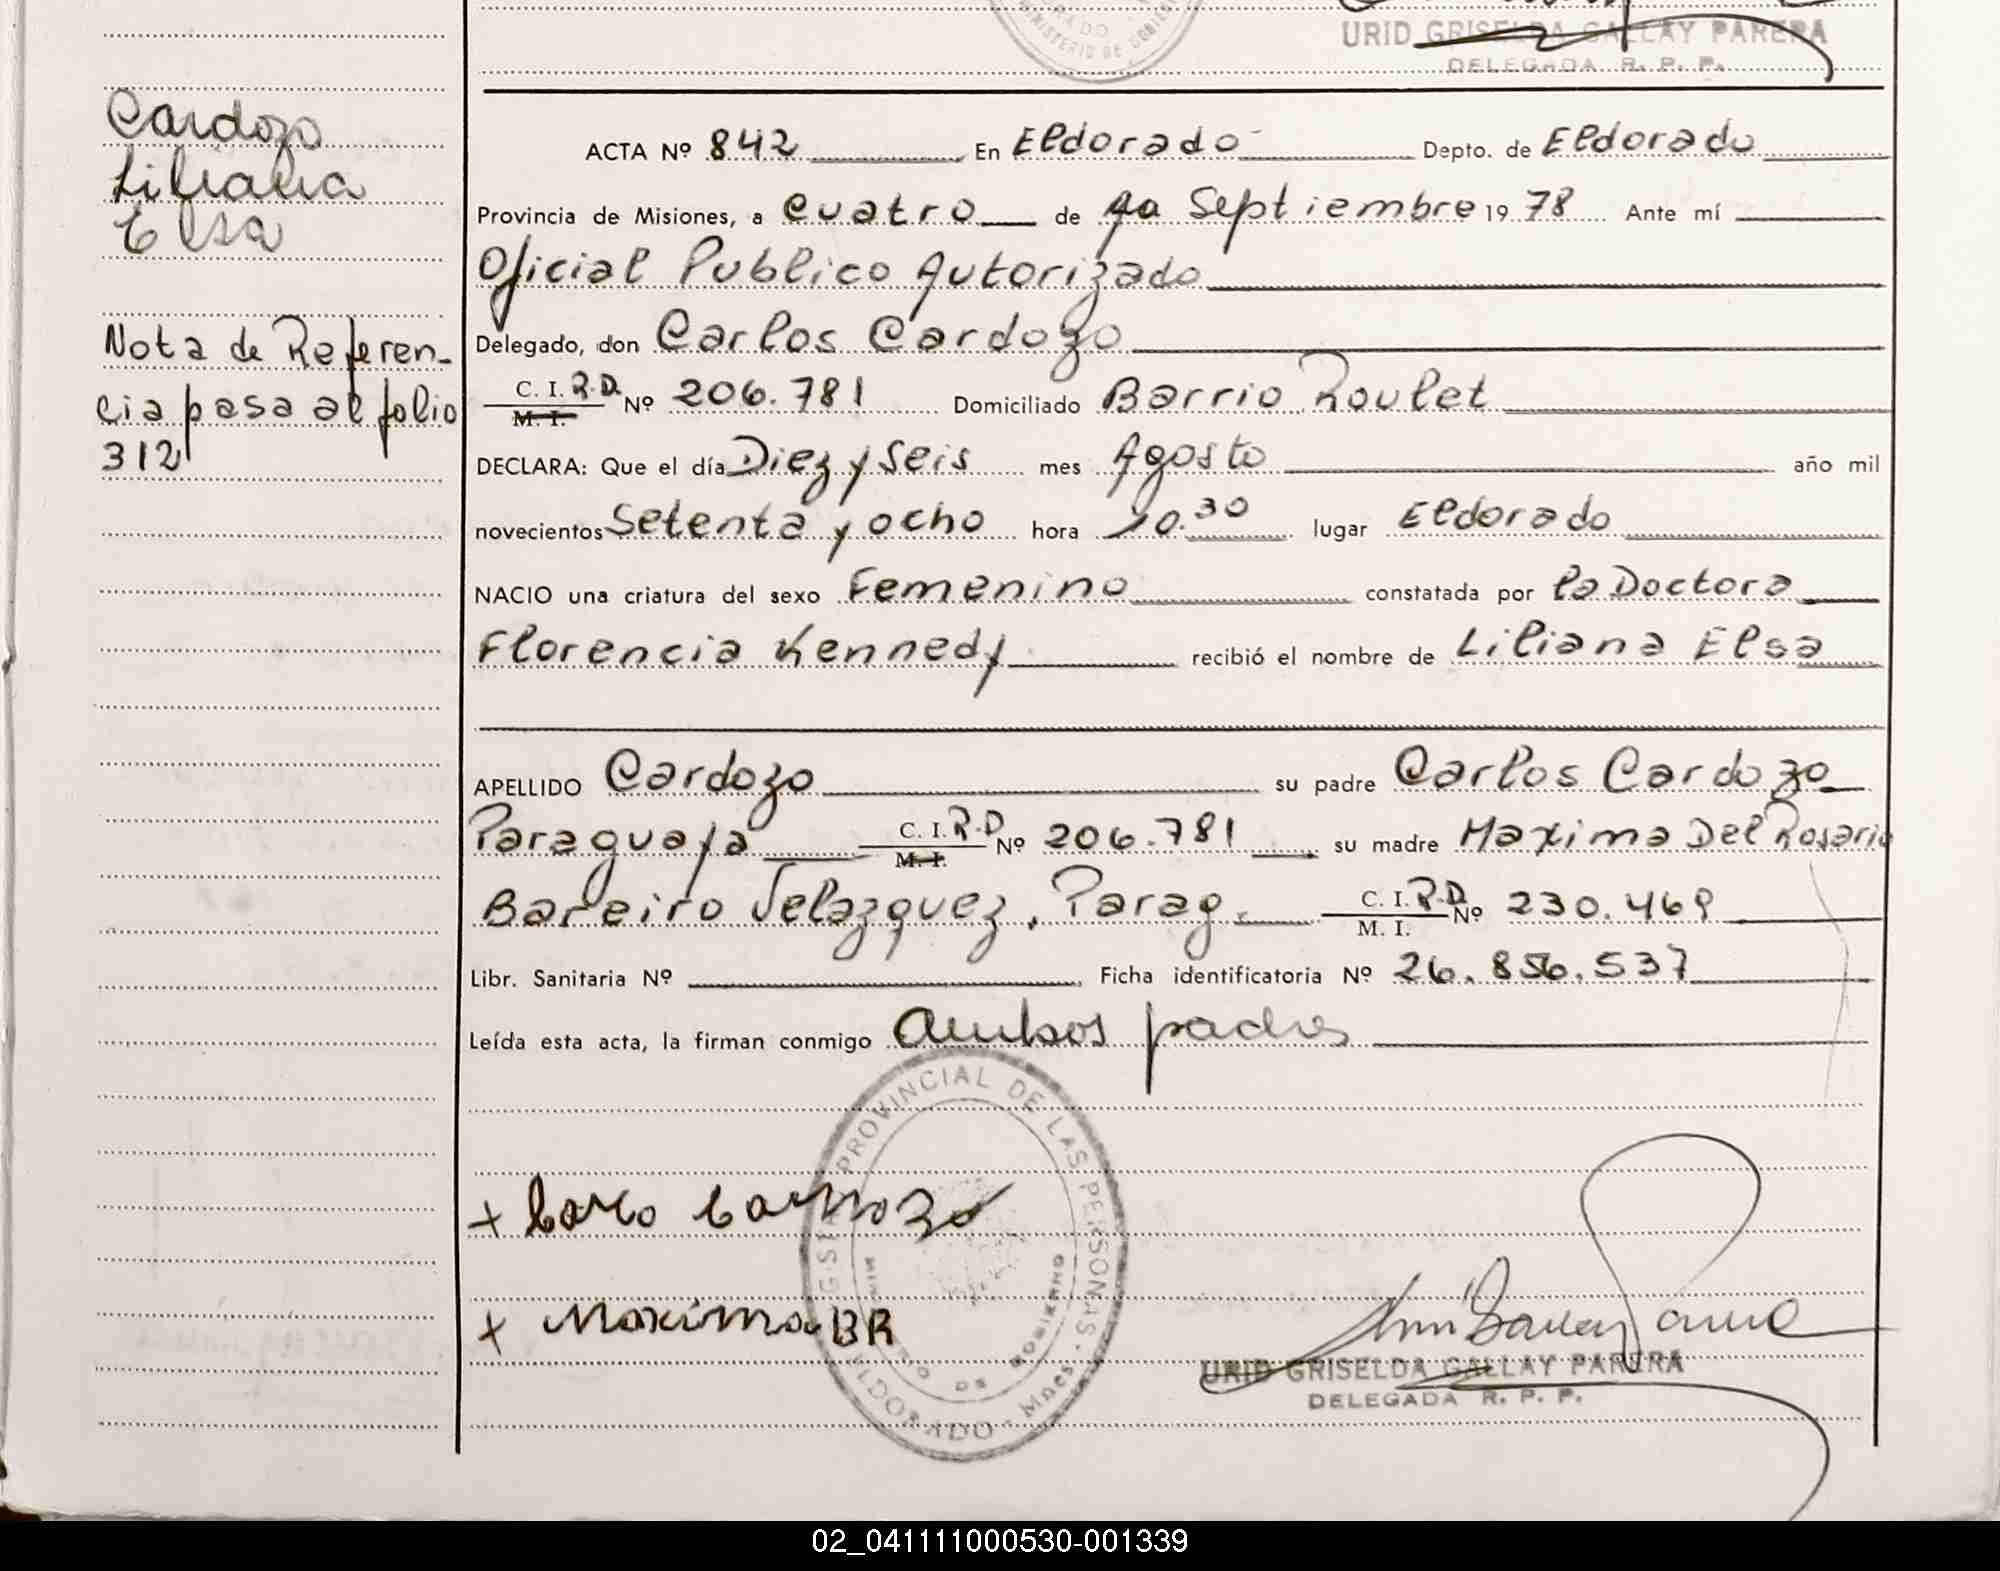 MINISTERIO DE GOBIERNO
URID GRISELDA GALLAY PARERA
DELEGADA R. P. P.
Cardozo
Liliana
Elsa
Nota de Referen-
cia pasa al folio
312
ACTA Nº 842 En Eldorado Depto. de Eldorado
Provincia de Misiones, a cuatro de Septiembre 19 78 Ante mí
Oficial Publico Autorizado
Delegado, don Carlos Cardozo
C. I. R.D. M. I. Nº 206.781 Domiciliado Barrio Roulet
DECLARA: Que el día Diez y seis mes Agosto año mil
novecientos Setenta y ocho hora 10.30 lugar Eldorado
NACIO una criatura del sexo Femenino constatada por la Doctora
Florencia Kennedy recibió el nombre de Liliana Elsa
APELLIDO Cardozo su padre Carlos Cardozo
Paraguaya C. I. R.D M. I. Nº 206.781 su madre Maxima Del Rosario
Bareiro Velazquez, Parag. C. I. R.D. M. I. Nº 230.469
Libr. Sanitaria Nº Ficha identificatoria Nº 26.856.537
Leída esta acta, la firman conmigo ambos padres
PROVINCIAL DE LAS PERSONAS
ELDORADO - Mnes.
+ Carlo Cardozo
+ Maxima BR
URID GRISELDA GALLAY PARERA
DELEGADA R. P. P.
02_041111000530-001339